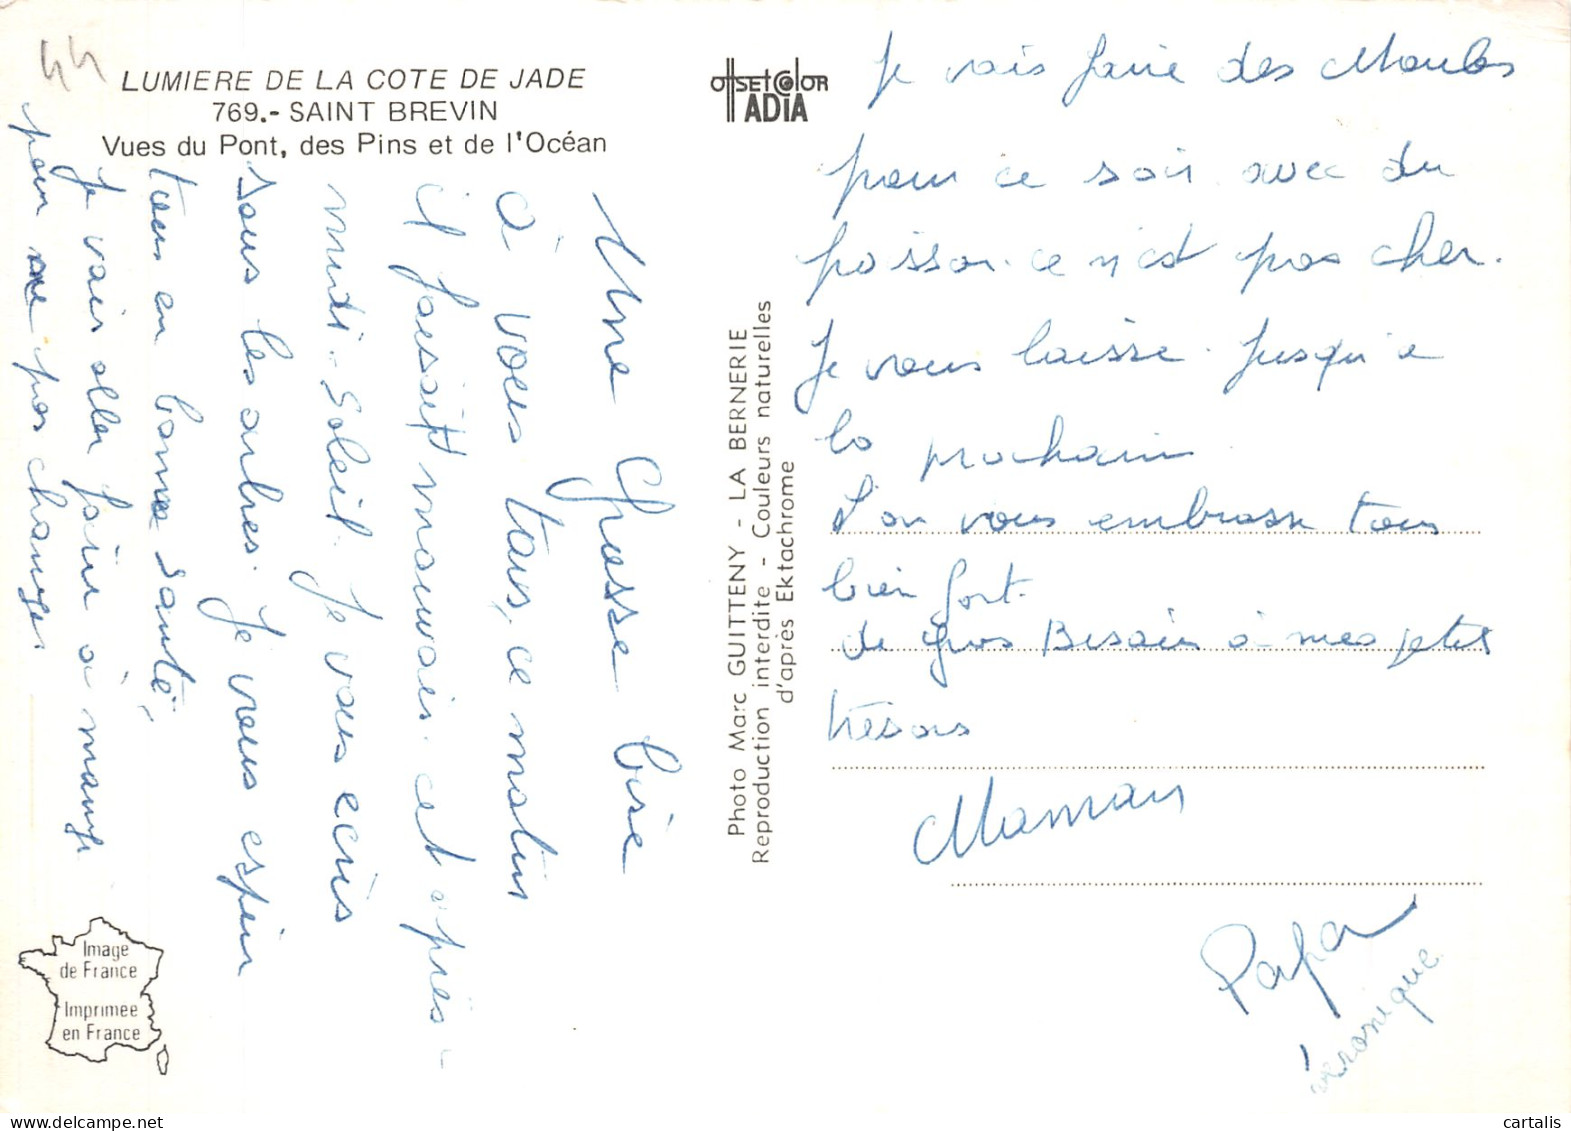 44
LUMIERE DE LA COTE DE JADE
769.- SAINT BREVIN
Vues du Pont, des Pins et de l'Océan
offsetcolor
ADIA
Une Grosse bise
à vous tous, ce matin
il faisait mauvais. et après-
midi - Soleil. Je vous ecris
sous les arbres. Je vous espèr
tous en bonne santé,
Je vais aller faire à mange
pour ne pas changer.
Photo Marc GUITTENY - LA BERNERIE
Reproduction interdite - Couleurs naturelles
d'après Ektachrome
Je vais faire des Moules
pour ce soir avec du
poisson. ce n'est pas cher.
Je vous laisse. Jusqu'a
la prochain
L'on vous embrasse tous
bien fort.
de gros Besais à mes ptes
trésors
Maman
Papa
Véronique
Image
de France
Imprimée
en France
cartalis